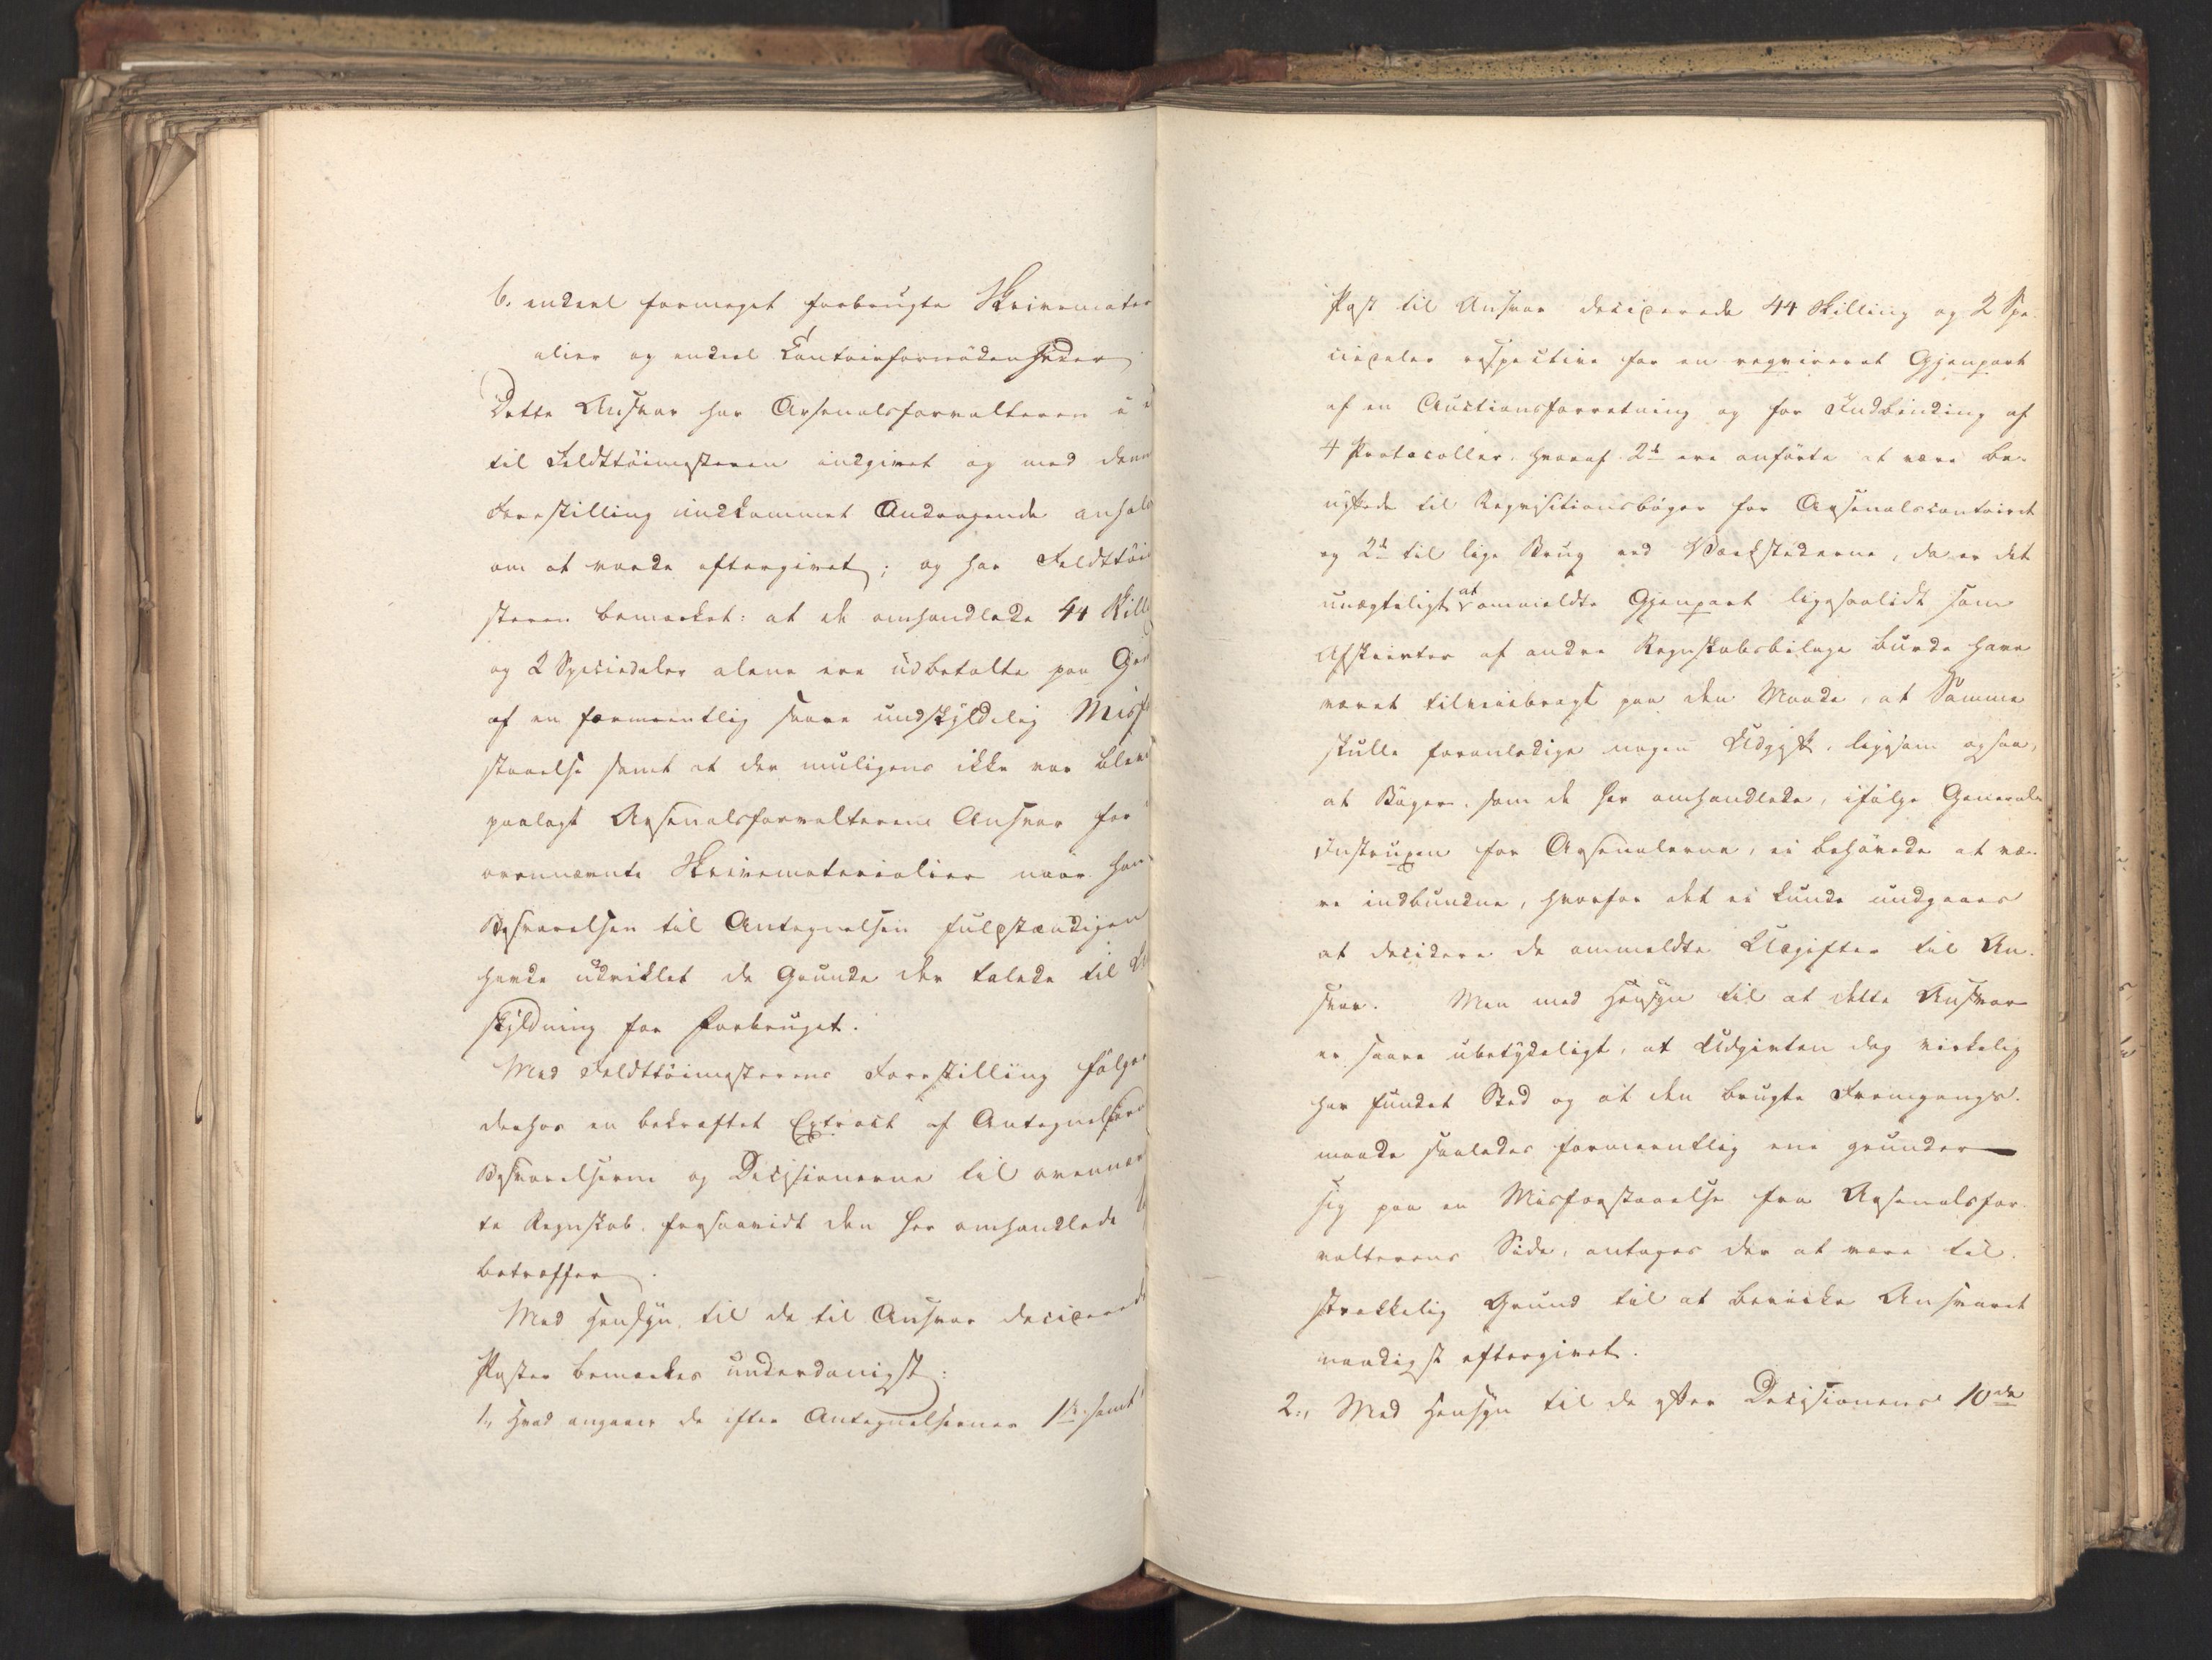 b. endeel formeget forbrugte Skrivemateri
alier og endeel Contoirfornödenheder
Dette Ansvar har Arsenalsforvalteren i
til Feldttöimesteren indgivet og med denne
Forestilling indkommet Andragende anhold
om at vorde eftergivet; og har Feldttöi
steren bemærket: at de omhandlede 44 Skill
og 2 Speciedaler alene ere udbetalte paa
af en formeentlig svare undskyldelig Misf
staaelse samt at der muligens ikke var bleve
paalagt Arsenalsforvalteren Ansvar for
ovennævnte Skrivematerialier naar han
Besvarelsen til Antegnelsen fulstændigen
havde udviklet de Grunde der talede til
skyldning for Forbruget.
Med Feldttöimesterens Forestilling fölger
derhos en bekræftet Extract af Antegnelserne
Besvarelserne og Decisionerne til ovennævn
te Regnskab forsaavidt den her omhandlede
betræffer.
Med Hensyn til de til Ansvar deciderede
Poster bemærkes underdanigst:
1., Hvad angaaer de efter Antegnelsernes 1ste samt
Post til Ansvar deciderede 44 Skilling og 2 Spe-
ciedaler respective for en reqvireret Gjenpart
af en Auctionsforretning og for Indbinding af
4 Protocoller, hvoraf 2de ere anförte at være be-
nÿttede til Reqvisitionsböger for Arsenalscontoiret
og 2de til lige Brug ved Værkstederne, da er det
unægteligt at ommeldte Gjenpart ligesaalidt som
Afskrivter af andre Regnskabsbilage burde have
været tilveiebragt paa den Maade, at Samme
skulle foranledige nogen Udgift, ligesom ogsaa,
at Böger, som de her omhandlede, ifölge General-
Instruxen for Arsenalerne, ei behövede at væ-
re indbundne, hvorfor det ei kunde undgaaes
at decidere de ommeldte Udgifter til An-
svar. Men med Hensyn til at dette Ansvar
er saare ubetydeligt, at Udgivten dog virkelig
har fundet Sted og at den brugte Fremgangs-
maade saaledes formeentlig ene grunder
sig paa en Misforstaaelse fra Arsenalsfor-
valterens Side, antages der at være til-
strækkelig Grund til at bevirke Ansvaret
naadigst eftergivet.
2., Med Hensyn til de efter Decisionens 10de